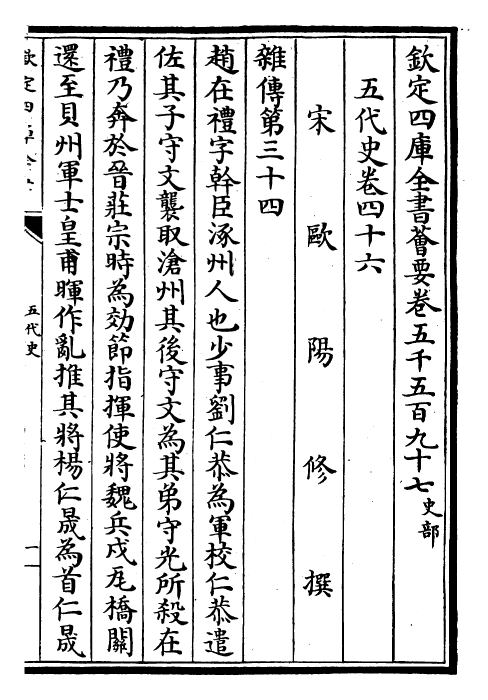 欽定四庫全書薈要卷五千五百九十七史部
五代史卷四十六
宋歐陽修撰
雜傳第三十四
趙在禮字幹臣涿州人也少事劉仁恭為軍校仁恭遣
佐其子守文襲取滄州其後守文為其弟守光所殺在
禮乃奔於晉莊宗時為効節指揮使將魏兵戍瓦橋關
還至貝州軍士皇甫暉作亂推其將楊仁晟為首仁晟
五代史
一